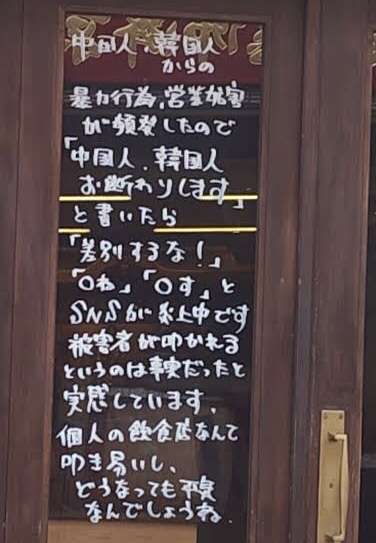 中国人 韓国人
からの
暴力行為、営業妨害
が頻発したので
「中国人、韓国人
お断わりします」
と書いたら
「差別するな!」
「○ね」「○す」と
SNSが炎上中です
被害者が叩かれる
というのは事実だったと
実感しています、
個人の飲食店なんて
叩き易いし、
どうなっても平気
なんでしょうね、